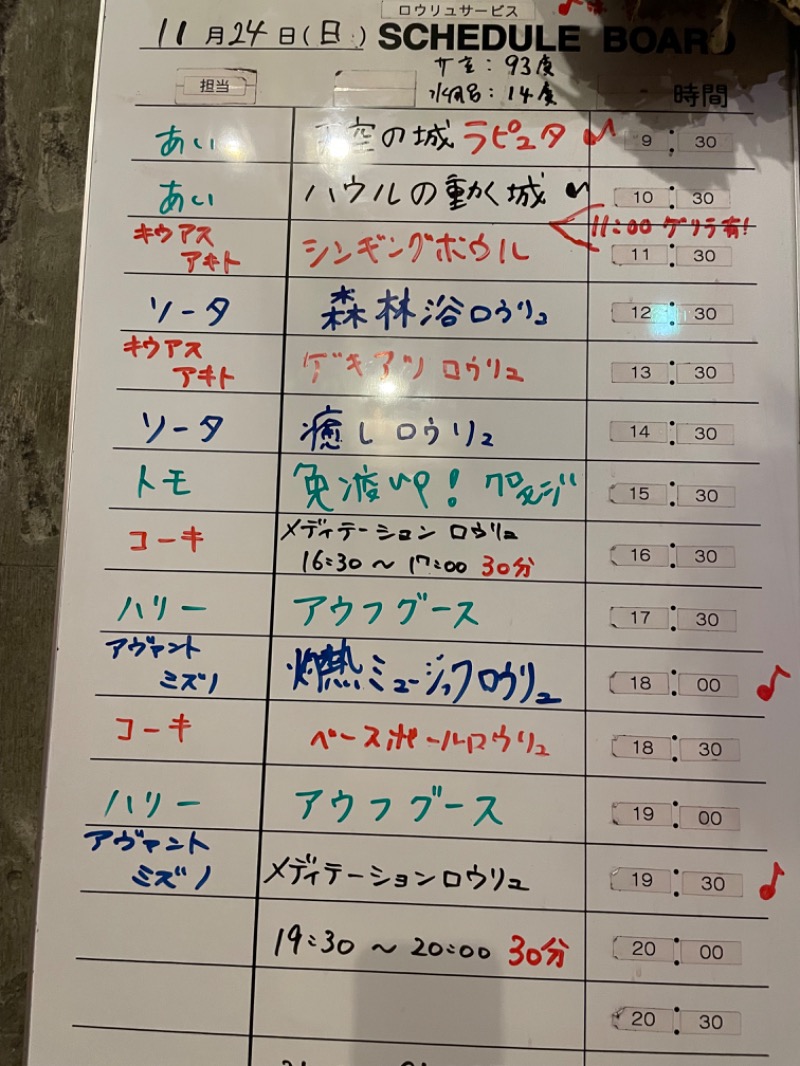 ロウリュサービス
11月24日(日) SCHEDULE BOARD
サ室：93度
水風呂：14度
担当 時間
あい 空の城 ラピュタ♪ 9：30
あい ハウルの動く城 10：30
11：00 ゲリラ有！
キウアス アキト シンギングボウル 11：30
ソータ 森林浴ロウリュ 12：30
キウアス アキト ゲキアツ ロウリュ 13：30
ソータ 癒しロウリュ 14：30
トモ 免疫up！ 15：30
コーキ メディテーション ロウリュ 16：30
16：30～17：00 30分
ハリー アウフグース 17：30
アヴァント ミズノ 灼熱ミュージックロウリュ 18：00 ♪
コーキ ベースボールロウリュ 18：30
ハリー アウフグース 19：00
アヴァント ミズノ メディテーションロウリュ 19：30 ♪
19：30～20：00 30分 20：00
20：30